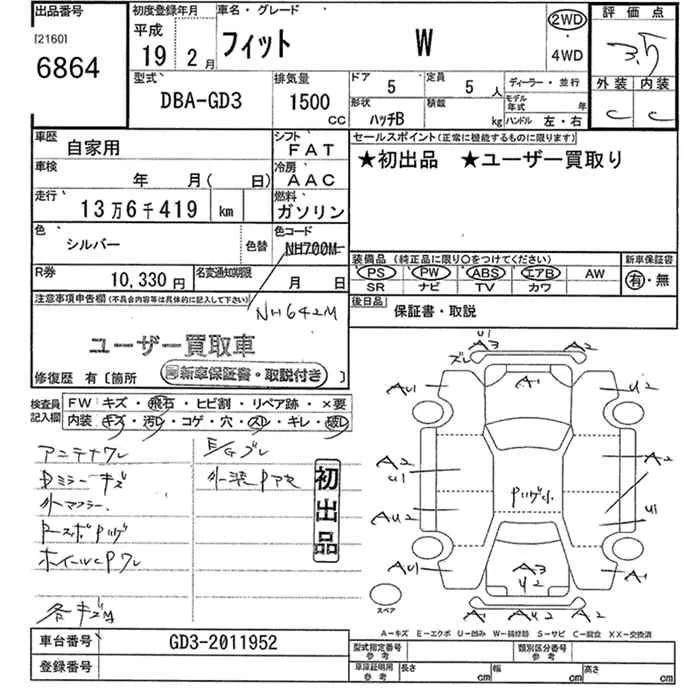 出品番号
[2160]
6864
初度登録年月
平成
19年2月
車名・グレード
フィット W
2WD
・
4WD
評価点
3.5
外装 内装
C C
型式
DBA-GD3
排気量
1500
CC
ドア 5
定員 5人
形状 ハッチB
積載 kg
ディーラー・並行
モデル年式 年
ハンドル 左・右
車歴 自家用
シフト FAT
車検 年 月( 日)
冷房 AAC
走行 13万6千419 km
燃料 ガソリン
色 シルバー 色替
色コード NH700M
NH642M
R券 10,330円
名変通知期限 月 日
セールスポイント(正常に機能するものに限ります)
★初出品 ★ユーザー買取り
装備品(純正品に限り○をつけてください)
PS PW ABS エアB AW
SR ナビ TV カワ
新車保証書
有・無
後日品 保証書・取説
注意事項申告欄(不具合内容等は具体的に記入して下さい)
ユーザー買取車
新車保証書・取説付き
修復歴 有〔箇所 〕
検査員記入欄
FW キズ・飛石・ヒビ割・リペア跡・×要
内装 キズ・汚レ・コゲ・穴・スレ・キレ・破レ
アンテナワレ
Dミラーキズ
外マフラー
ホイールcPワレ
各キズM
E/Gブレ
初出品
U1
A3
A2
ズレ
AU1
A1
U2
A2
U1
A2
AU2
U1
AU1
A3
U2
A1
A1
AU2
A2
スペア
A−キズ E−エクボ U−凹み W−補修跡 S−サビ C−腐食 XX−交換済
車台番号 GD3-2011952
登録番号
型式指定番号 参考
類別区分番号 参考
車庫証明用 参考
長さ cm
幅 cm
高さ cm